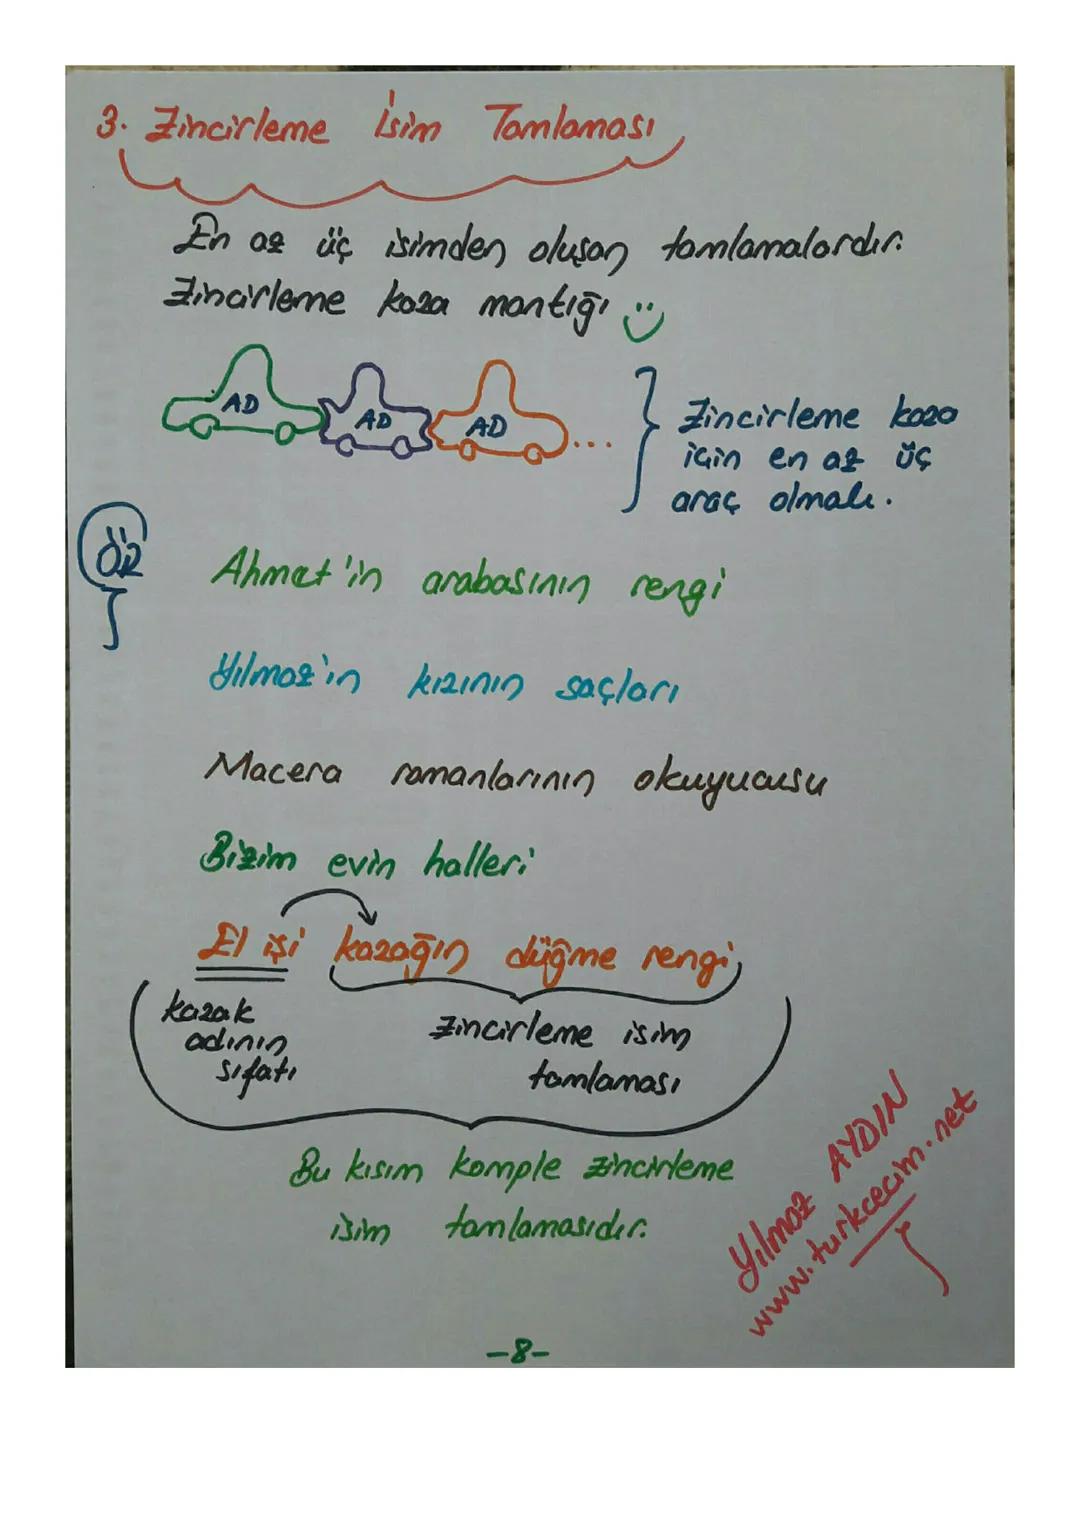 3. Zincirleme İsim Tamlaması
En az üç isimden oluşan tamlamalardır.
Zincirleme kaza mantığı
AD AD AD ...
Zincirleme kaza
için en az üç
araç olmalı.
ÖR
Ahmet'in arabasının rengi
Yılmaz'ın kızının saçları
Macera romanlarının okuyucusu
Bizim evin halleri
El işi kazağın düğme rengi
kazak
adının
sıfatı
Zincirleme isim
tamlaması
Bu kısım komple zincirleme
isim tamlamasıdır.
Yılmaz AYDIN
www.turkcecim.net
-8-